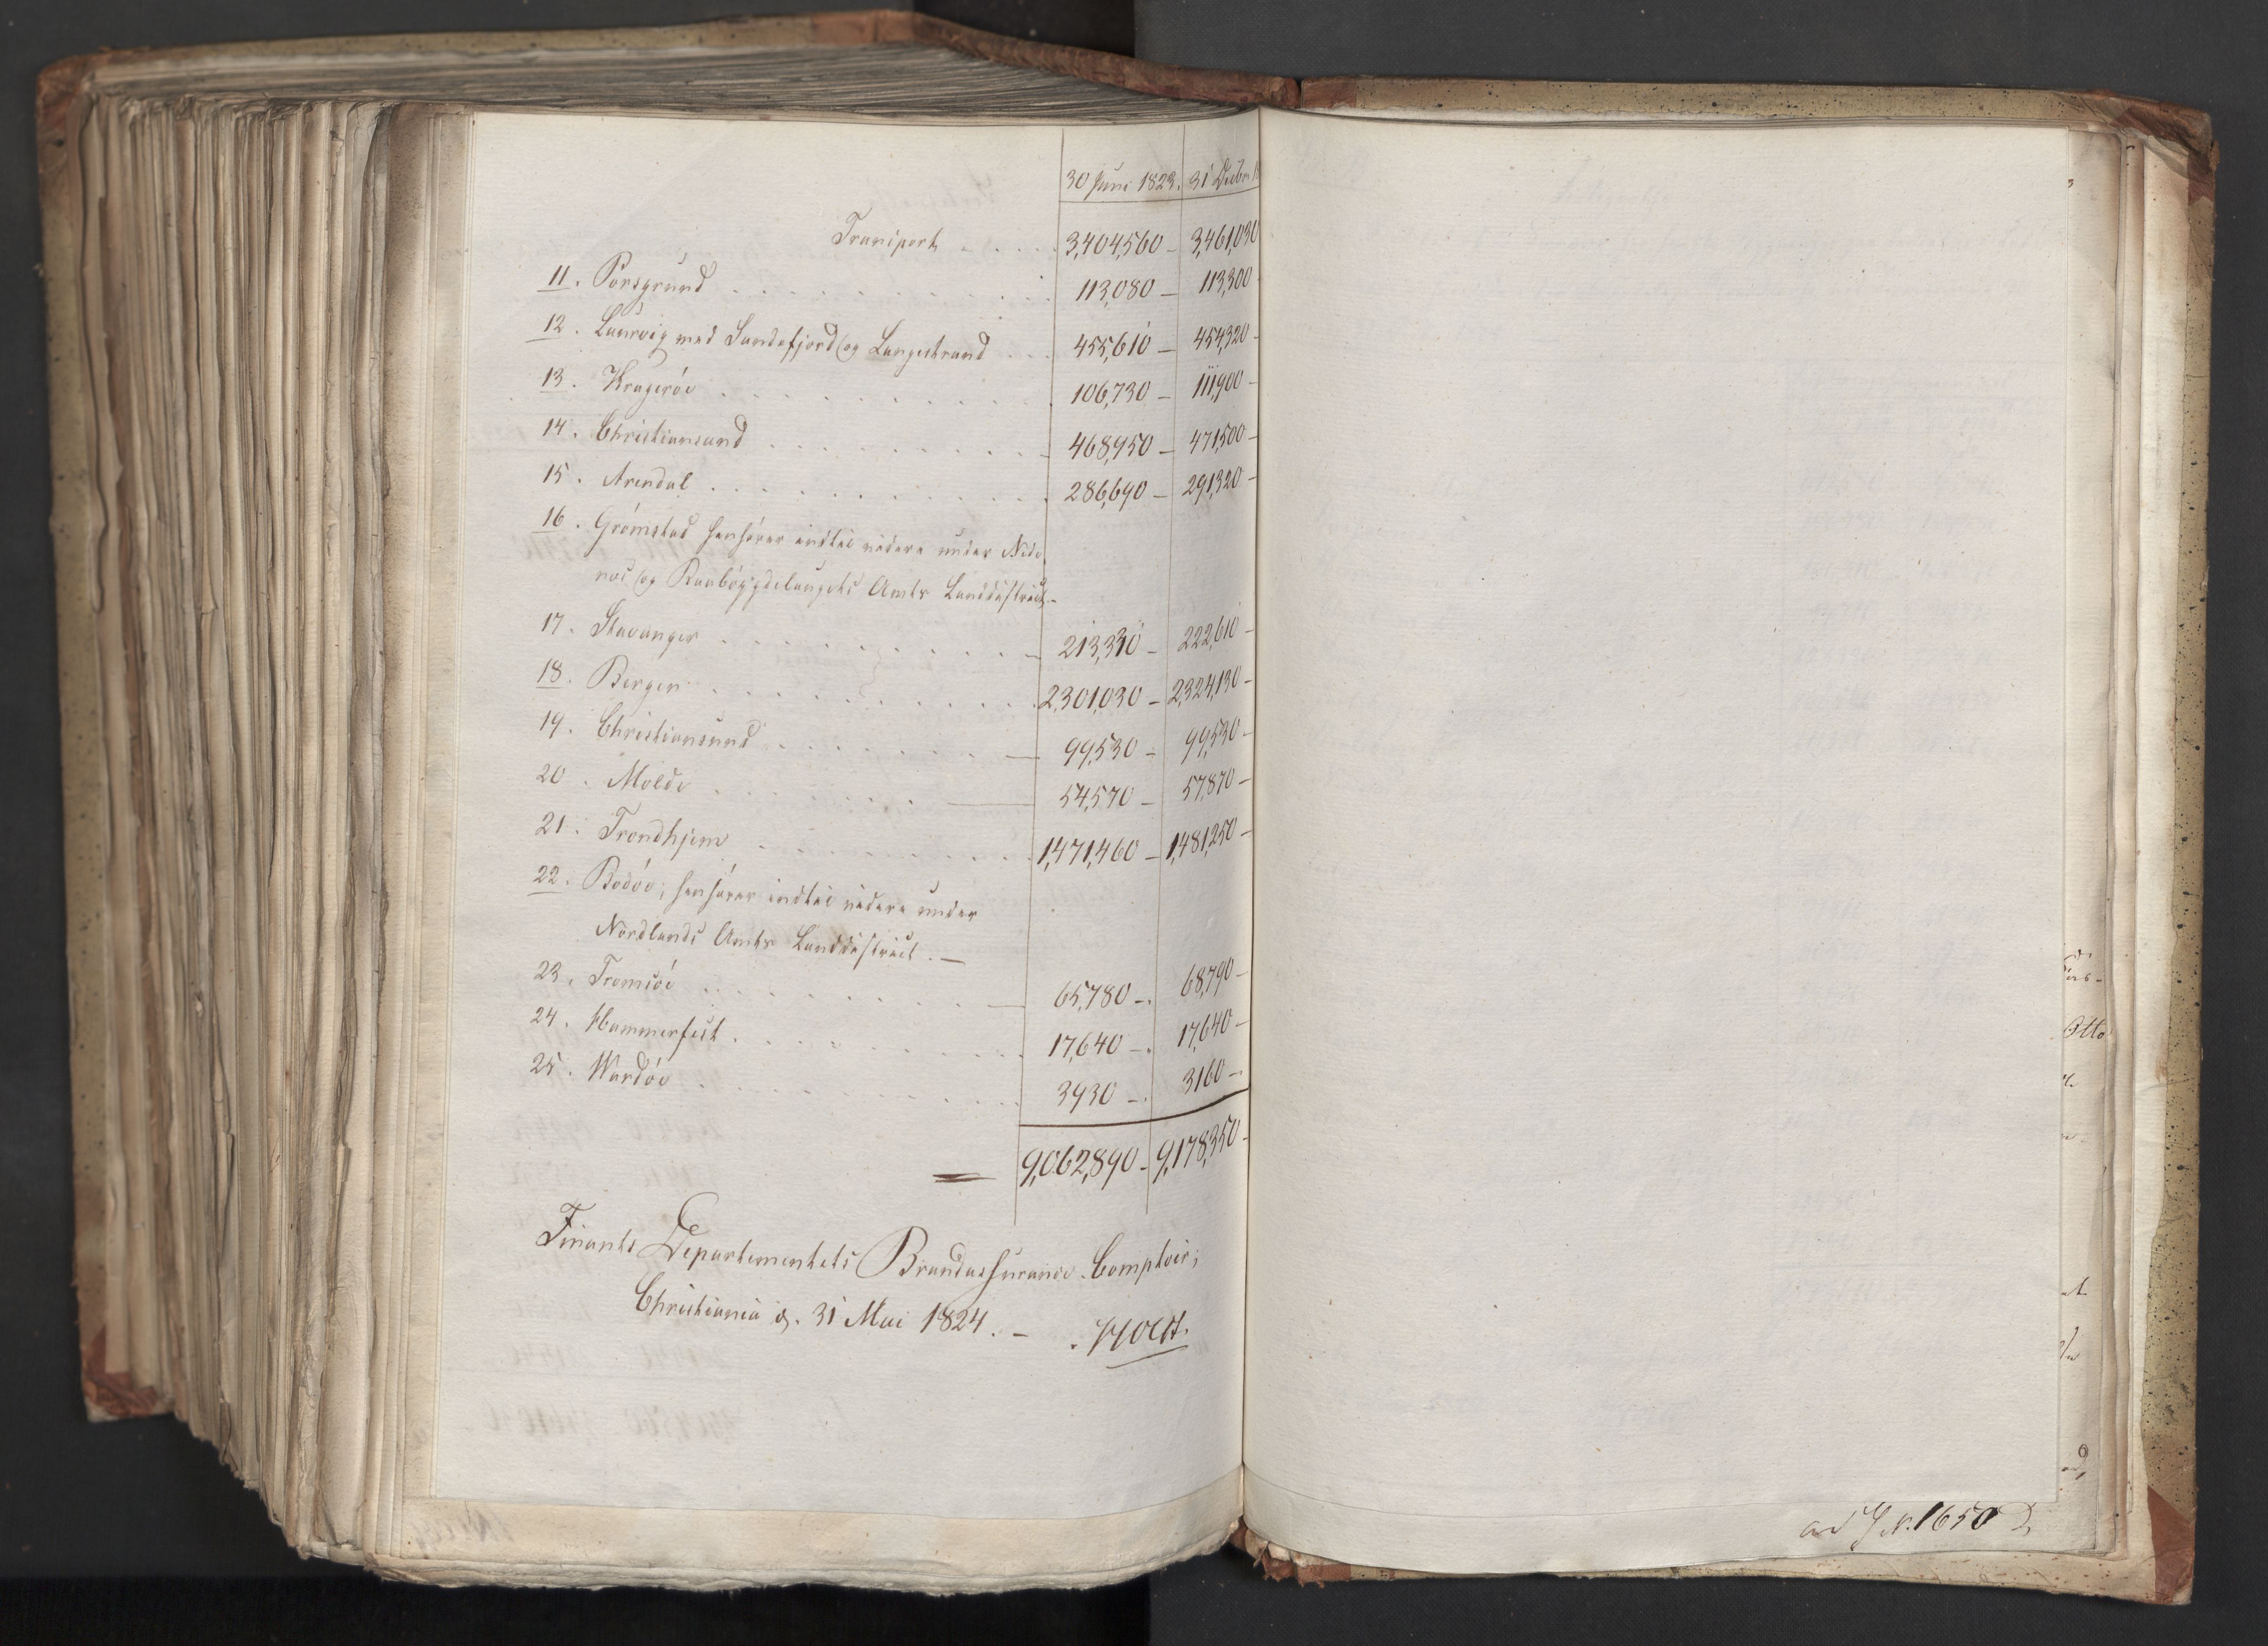 30 Juni 1823. 31 Decbr 18
Transport . . . . 3,404,560 – 3,461,030
11. Porsgrund . . . . . . . . . . 113,080 – 113,300 –
12. Laurvig med Sandefjord og Langestrand . . . 455,610 – 454,320 –
13. Krageröe . . . . . . . . . . 106,730 – 111,900 –
14. Christiansand . . . . . . . . . 468,950 – 471,500 –
15. Arendal . . . . . . . . . . . 286,690 – 291,320 –
16. Grömstad henhörer indtil videre under Nede
næs og Raabøygdelaugets Amts Landdistrict. –
17. Stavanger . . . . . . . . . . 213,330 – 222,610 –
18. Bergen . . . . . . . . . . . 2,301,030 – 2,324,130 –
19. Christiansund . . . . . . . . 99,530 – 99,530 –
20. Molde . . . . . . . 54,570 – 57,870 –
21. Trondhjem . . . . . . . . . . 1,471,460 – 1,481,250 –
22. Bodöe; henhörer indtil videre under
Nordlands Amts Landdistrict. –
23. Tromsöe . . . . . . . . . . 65,780 – 68,790 –
24. Hammerfest . . . . . . . . . 17,640 – 17,640 –
25. Wardöe . . . . . . . . . . 3930 – 3160 –
9,062,890 – 9,178,350 –
Finants Departementets Brandassurance-Comptoir;
Christiania d. 31 Mai 1824. –
Holst.
Otto
ad J. N. 1650 D